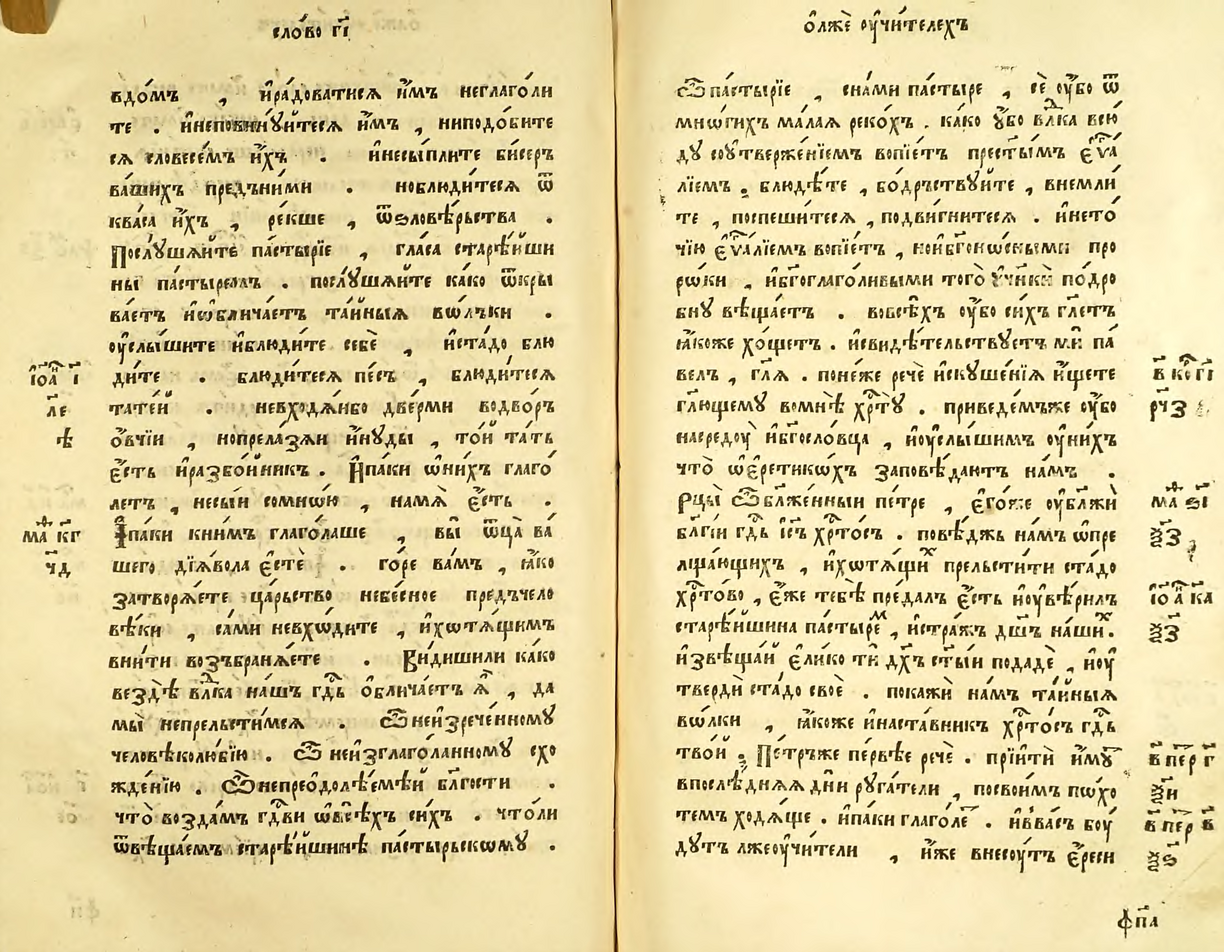 сло́во г҃і
вдо́мъ , и҆ра́доватисѧ и҆́мъ неглаго́ли
те . и҆неповинꙋ́йтесѧ и҆́мъ , ниподо́бите
сѧ словесе́мъ и҆́хъ . и҆несы́плите би́серъ
ва́шихъ предъни́ми . ноблюди́тесѧ ѿ
ква́са и҆́хъ , ре́кше , ѿѕловѣ́рьства .
Послꙋ́шѧйте па́стырїе , гла́са старѣ́йши
ны па́стыремъ . послꙋ́шѧйте ка́ко ѿкры
ва́етъ и҆ѡ҆блича́етъ та́йныѧ во́лъки .
оу҆слы́шите и҆блюди́те себѐ , и҆ста́до блю
ди́те . блюди́тесѧ пе́съ , блюди́тесѧ
іѡ҃а і҃
ле҃
ѣ
тате́й . невходѧ́ибо две́рми водво́ръ
о҆́вчїи , нопрела́зѧи и҆нꙋ́ды , то́й та́ть
е҆́сть и҆разбо́йникъ . И҆па́ки ѡ҆ни́хъ глаго́
летъ , несы́и сомно́ю , намѧ̀ е҆́сть .
І҆па́ки кни́мъ глаго́лаше , вы̀ ѿц҃а̀ ва́
ма кг҃
ч҃д
шего дїѧ́вола е҆стѐ . го́ре ва́мъ , ꙗ҆́ко
затворѧ́ете ца́рьство небе́сное предъчело
вѣ́ки , са́ми невхѡ́дите , и҆хѡтѧ́щимъ
вни́ти возъбранѧ́ете . Ви́дишили ка́ко
вездѣ̀ влⷣка на́шъ гдⷭ҇ь о҆блича́етъ ѧ҆̀ , да
мы̀ непрельсти́мсѧ . Ѽ неи҆зрече́нномꙋ
человѣколю́бїю . Ѽ неи҆зглаго́ланномꙋ схо
жде́нїю . Ѽ непреодолѣ́емѣй бл҃гости .
что̀ возда́мъ гдⷭ҇ви ѡ҆все́хъ си́хъ . что́ли
ѿвѣща́емъ старѣ́йшинѣ па́стырьскомꙋ .
о҆лжѐ оу҆чи́телехъ
Ѽ па́стырїе , сна́ми па́стыре , сѐ оу҆́бо ѿ
мно́гихъ ма́лаѧ реко́хъ . ка́ко оу҆́бо влⷣка всю́
дꙋ соутверже́нїемъ вопїе́тъ прест҃ы́мъ е҆ѵⷢ҇а́
лїемъ . блюдѣ́те , бо́дръствꙋйте , внемли́
те , поспеши́тесѧ , подви́гнитесѧ . и҆нето́
чїю е҆ѵⷢ҇а́лїемъ вопїе́тъ , нои҆бг҃оно́сными про
рѡ́ки , и҆бг҃оглаго́ливыми того̀ оу҆чн҃кѝ подро́
бнꙋ вѣща́етъ . вовсѣ́хъ оу҆́бо си́хъ гл҃етъ
ꙗ҆́коже хо́щетъ . и҆свидѣ́тельствꙋетъ мѝ па́
велъ , гл҃ѧ . поне́же речѐ и҆скꙋше́нїѧ и҆́щете
в҃ ко г҃і
рч҃з
гл҃ющемꙋ вомнѣ̀ хрⷭ҇тꙋ̀ . приведе́мъже оу҆́бо
насредоу̀ и҆бг҃осло́вца , и҆оу҆слы́шимъ оу҆ни́хъ
что̀ ѡ҆е҆ретико́хъ заповѣ́даютъ на́мъ .
Рцы̀ ѽ бл҃же́нныи пе́тре , е҆го́же оу҆бл҃жѝ
ма ѕ҃і
бл҃гі́и гдⷭ҇ь і҆с҃ъ хрⷭ҇то́съ . повѣ́джь на́мъ ѡ҆пре
льща́ющихъ , и҆хотѧ́щиⷯ прельсти́ти ста́до
хрⷭ҇то́во , е҆́же тебѣ̀ преда́лъ е҆́сть и҆оу҆вѣ́рилъ
іѡ҃а ка҃
старѣ́йшина па́стыреⷨ , и҆стра́жъ дш҃ъ на́шиⷯ.
и҆звѣща́й е҆ли́ко тѝ дх҃ъ ст҃ы́и подадѐ , и҆оу҆
твердѝ ста́до своѐ . покажѝ на́мъ та́йныѧ
во́лки , ꙗ҆́коже и҆наста́вникъ хрⷭ҇то́съ гдⷭ҇ь
тво́й . Пе́тръже пе́рвѣе речѐ . прїитѝ и҆́мꙋⷮ
в҃ пер г҃
впослѣ́днѧѧ дн҃и рꙋга́тели , посвои́мъ по́хо
темъ ходѧ́ще . и҆па́ки глаго́леⷮ . и҆ва́съ боу́
в҃ пер в҃
дꙋтъ лжеоу҆чи́тели , и҆́же внесоу́тъ е҆́реси
ф҃па